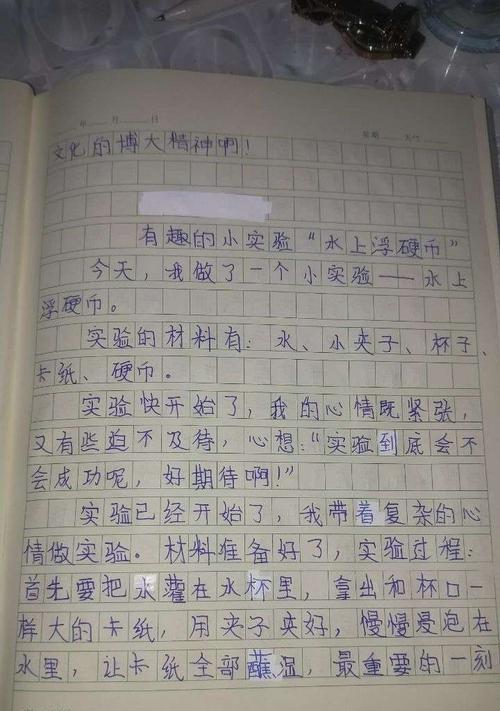 年 月 日 星期 天气
文化的博大精神啊!
有趣的小实验“水上浮硬币”
今天,我做了一个小实验——水上
浮硬币。
实验的材料有:水、小夹子、杯子、
卡纸、硬币。
实验快开始了,我的心情既紧张,
又有些迫不及待,心想:“实验到底会不
会成功呢,好期待啊!”
实验已经开始了,我带着复杂的心
情做实验。材料准备好了,实验过程:
首先要把水灌在水杯里,拿出和杯口一
样大的卡纸,用夹子夹好,慢慢浸泡在
水里,让卡纸全部蘸湿,最重要的一刻